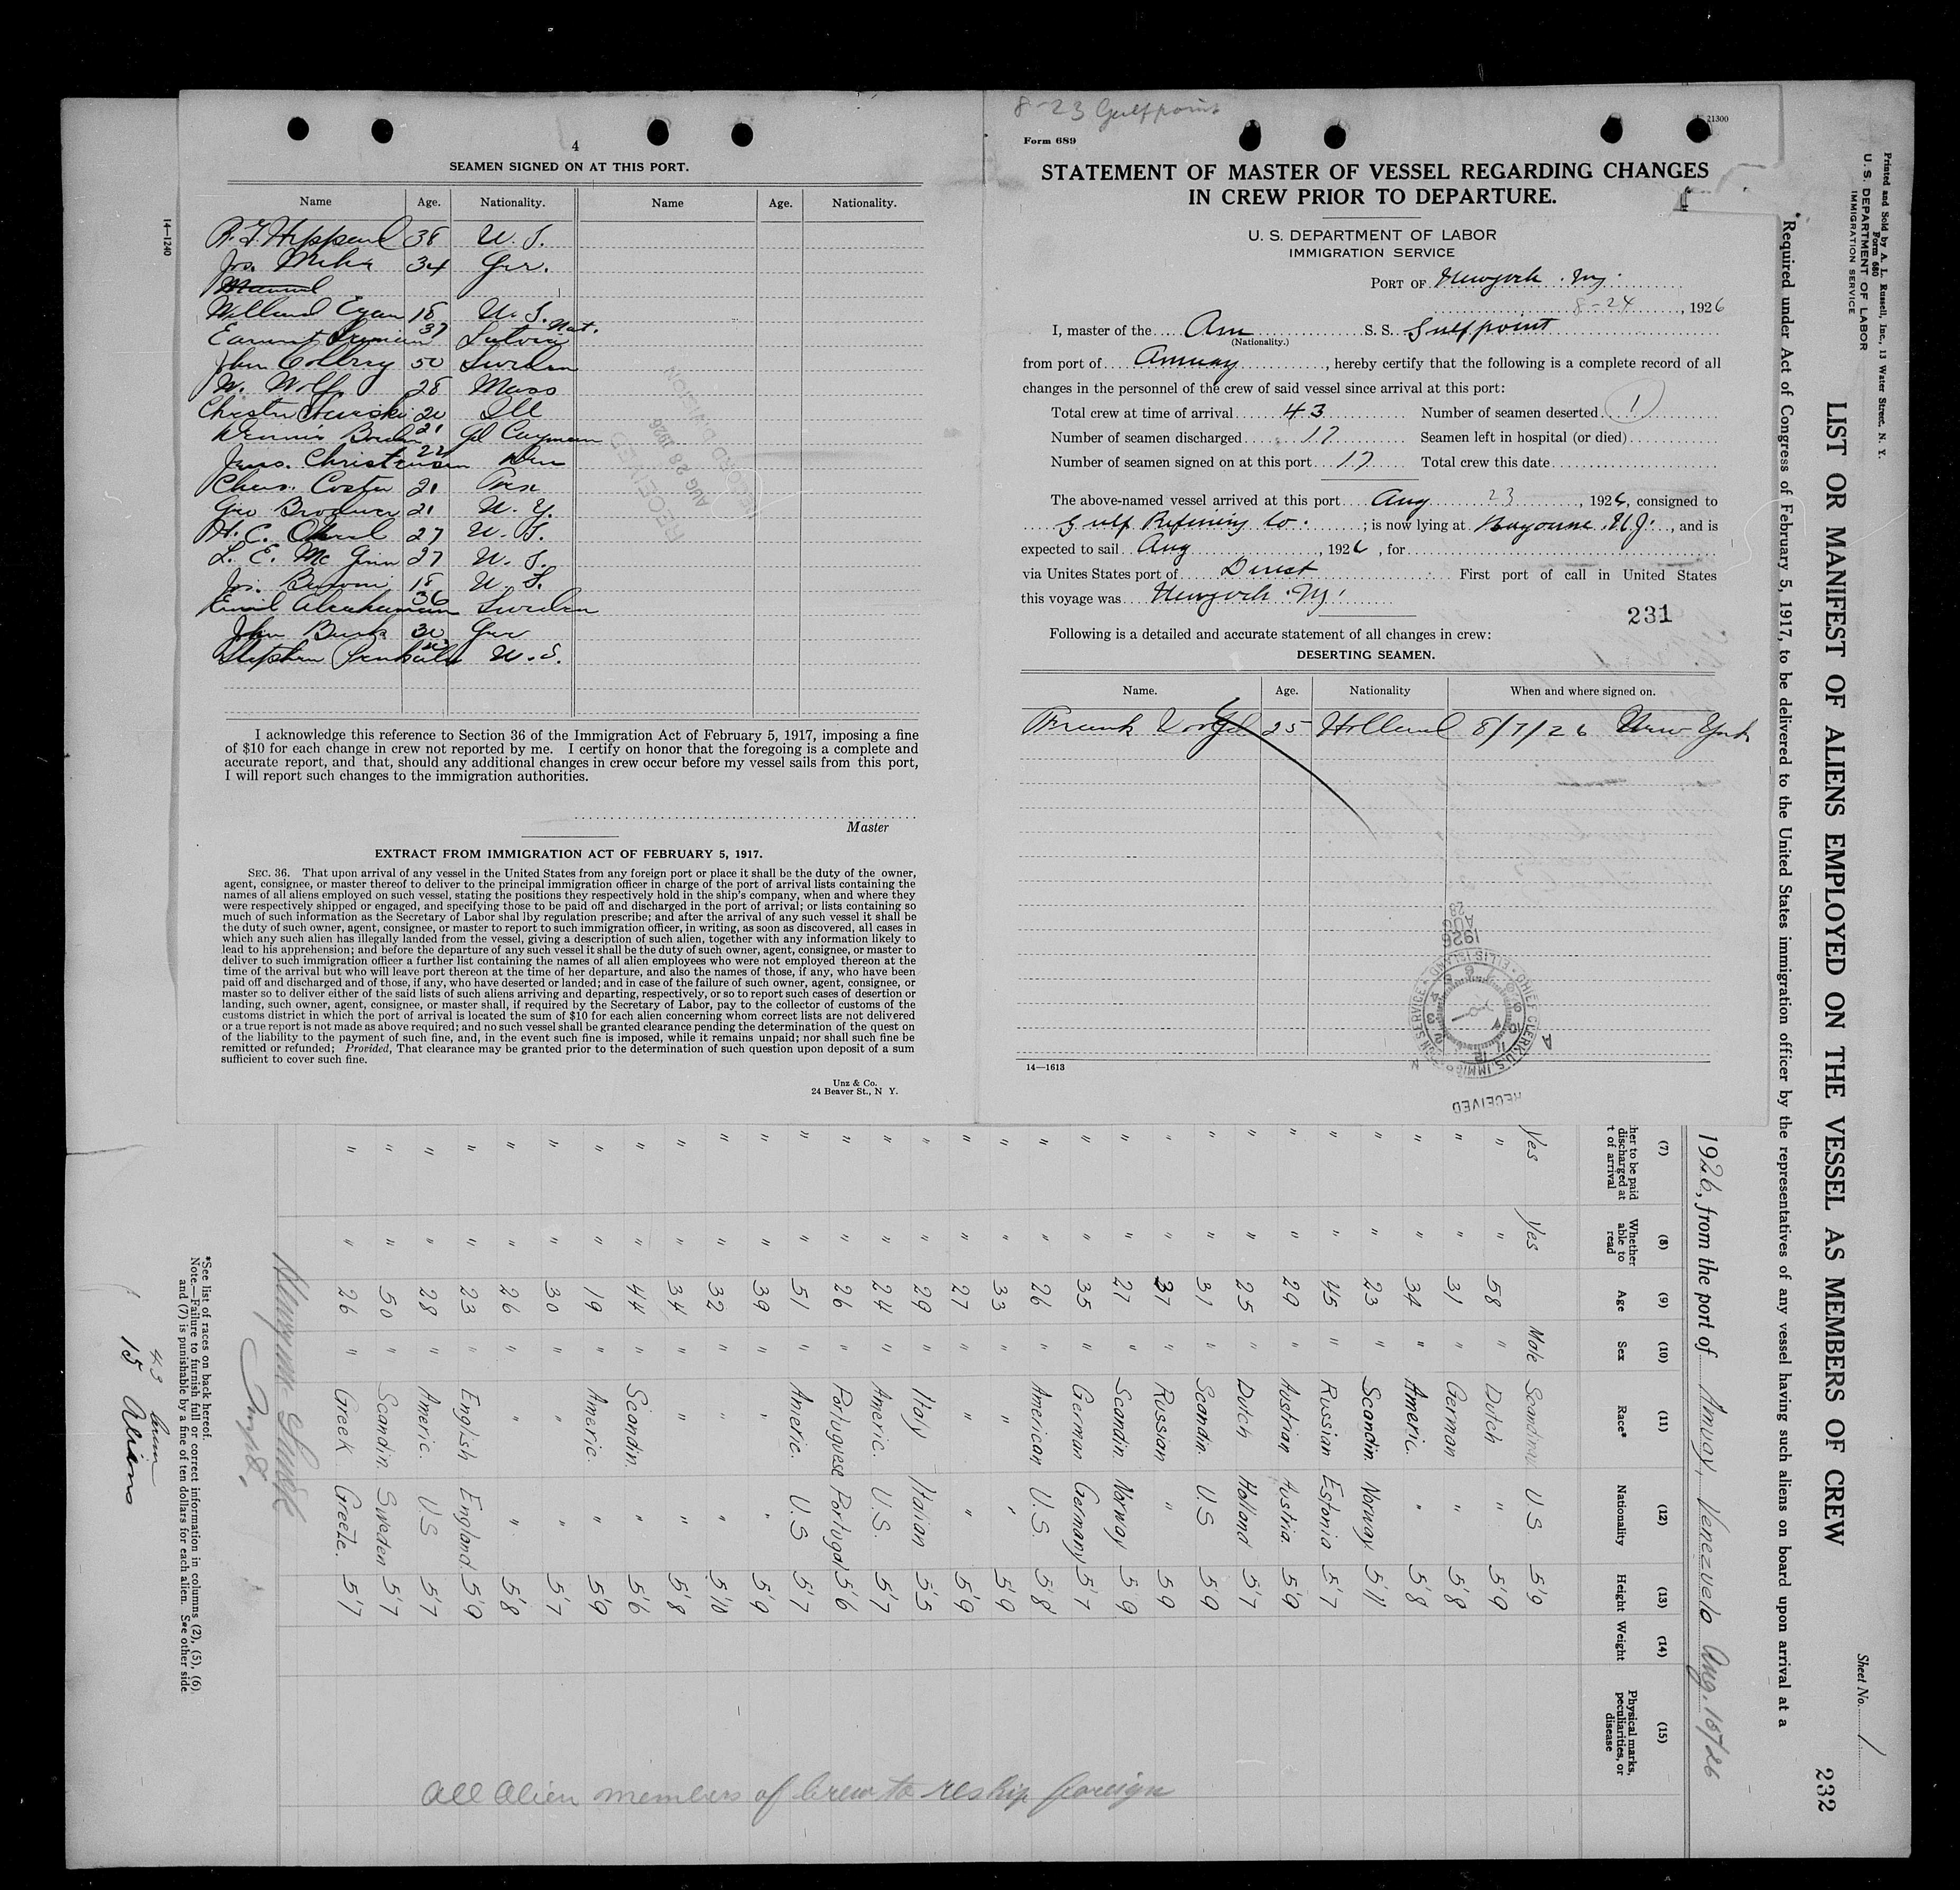 4
SEAMEN SIGNED ON AT THIS PORT.
Name Age. Nationality. Name Age. Nationality.
38 U. S.
Jos. 34 Ger.
Manuel
18 U. S. Nat.
37 Latvia
John 50 Sweden
W. Wolf 28 Mass
Chester 20 Ill
Dennis 21 Gd Cayman
Christensen 22 Den
Chas. Coster 21
Geo 21 N. Y.
H. C. 27 U. S.
L. E. Mc Ginn 27 U. S.
18 U. S.
Emil 36 Sweden
John Burk 30 Ger
Stephen U. S.
I acknowledge this reference to Section 36 of the Immigration Act of February 5, 1917, imposing a fine
of $10 for each change in crew not reported by me. I certify on honor that the foregoing is a complete and
accurate report, and that, should any additional changes in crew occur before my vessel sails from this port,
I will report such changes to the immigration authorities.
Master
EXTRACT FROM IMMIGRATION ACT OF FEBRUARY 5, 1917.
SEC. 36. That upon arrival of any vessel in the United States from any foreign port or place it shall be the duty of the owner,
agent, consignee, or master thereof to deliver to the principal immigration officer in charge of the port of arrival lists containing the
names of all aliens employed on such vessel, stating the positions they respectively hold in the ship's company, when and where they
were respectively shipped or engaged, and specifying those to be paid off and discharged in the port of arrival; or lists containing so
much of such information as the Secretary of Labor shal lby regulation prescribe; and after the arrival of any such vessel it shall be
the duty of such owner, agent, consignee, or master to report to such immigration officer, in writing, as soon as discovered, all cases in
which any such alien has illegally landed from the vessel, giving a description of such alien, together with any information likely to
lead to his apprehension; and before the departure of any such vessel it shall be the duty of such owner, agent, consignee, or master to
deliver to such immigration officer a further list containing the names of all alien employees who were not employed thereon at the
time of the arrival but who will leave port thereon at the time of her departure, and also the names of those, if any, who have been
paid off and discharged and of those, if any, who have deserted or landed; and in case of the failure of such owner, agent, consignee, or
master so to deliver either of the said lists of such aliens arriving and departing, respectively, or so to report such cases of desertion or
landing, such owner, agent, consignee, or master shall, if required by the Secretary of Labor, pay to the collector of customs of the
customs district in which the port of arrival is located the sum of $10 for each alien concerning whom correct lists are not delivered
or a true report is not made as above required; and no such vessel shall be granted clearance pending the determination of the quest on
of the liability to the payment of such fine, and, in the event such fine is imposed, while it remains unpaid; nor shall such fine be
remitted or refunded; Provided, That clearance may be granted prior to the determination of such question upon deposit of a sum
sufficient to cover such fine.
Unz & Co.
24 Beaver St., N Y.
14—1240
RECEIVED
AUG 28 1926
RECORD DIVISION
8-23 Gulfpoint
21300
Form 689
STATEMENT OF MASTER OF VESSEL REGARDING CHANGES
IN CREW PRIOR TO DEPARTURE.
U. S. DEPARTMENT OF LABOR
IMMIGRATION SERVICE
PORT OF Newyork. Ny.
8-24, 1926
I, master of the Am S. S. Gulfpoint
(Nationality.)
from port of Amuay, hereby certify that the following is a complete record of all
changes in the personnel of the crew of said vessel since arrival at this port:
Total crew at time of arrival 43 Number of seamen deserted 1
Number of seamen discharged 17 Seamen left in hospital (or died)
Number of seamen signed on at this port 17 Total crew this date
The above-named vessel arrived at this port Aug 23, 1926, consigned to
Gulf Refining Co. ; is now lying at Bayonne N.J., and is
expected to sail Aug, 1926, for
via Unites States port of Direct First port of call in United States
this voyage was Newyork. Ny.
231
Following is a detailed and accurate statement of all changes in crew:
DESERTING SEAMEN.
Name. Age. Nationality When and where signed on.
Frank 25 Holland 8/7/26 New York
14—1613
1926 AUG 28
CHIEF CLERK U.S. IMMIGRATION SERVICE ELLIS ISLAND
RECEIVED
Printed and Sold by A. L. Russell, Inc., 13 Water Street, N. Y.
Form 680
U. S. DEPARTMENT OF LABOR
IMMIGRATION SERVICE
Sheet No. 1
LIST OR MANIFEST OF ALIENS EMPLOYED ON THE VESSEL AS MEMBERS OF CREW
232
Required under Act of Congress of February 5, 1917, to be delivered to the United States immigration officer by the representatives of any vessel having such aliens on board upon arrival at a
1926, from the port of Amuay, Venezuela Aug. 15/26
(7) (8) (9) (10) (11) (12) (13) (14) (15)
her to be paid discharged at t of arrival Whether able to read Age Sex Race* Nationality Height Weight Physical marks, peculiarities, or disease
Yes Yes Male Scandina U.S 5'9
" " 58 " Dutch " 5'9
" " 31 " German " 5'8
" " 34 " Americ. " 5'8
" " 23 " Scandin. Norway 5'11
" " 45 " Russian Estonia 5'7
" " 29 " Austrian Austria 5'9
" " 25 " Dutch Holland 5'7
" " 31 " Scandin. U.S 5'9
" " 37 " Russian " 5'9
" " 27 " Scandin. Norway 5'9
" " 35 " German Germany 5'7
" " 26 " American U.S. 5'8
" " 33 " " " 5'9
" " 27 " " " 5'9
" " 29 " Italy Italian 5'5
" " 24 " Americ. U.S. 5'7
" " 26 " Portuguese Portugal 5'6
" " 51 " Americ. U.S 5'7
" " 39 " " " 5'9
" " 32 " " " 5'10
" " 34 " " " 5'8
" " 44 " Scandin. " 5'6
" " 19 " Americ. " 5'9
" " 30 " " " 5'7
" " 26 " " " 5'8
" " 23 " English England 5'9
" " 28 " Americ. U.S 5'7
" " 50 " Scandin. Sweden 5'7
" " 26 " Greek Greete. 5'7
All Alien members of Crew to reship foreign
*See list of races on back hereof.
Note.—Failure to furnish full or correct information in columns (2), (5), (6)
and (7) is punishable by a fine of ten dollars for each alien. See other side
43 Crew
15 Aliens